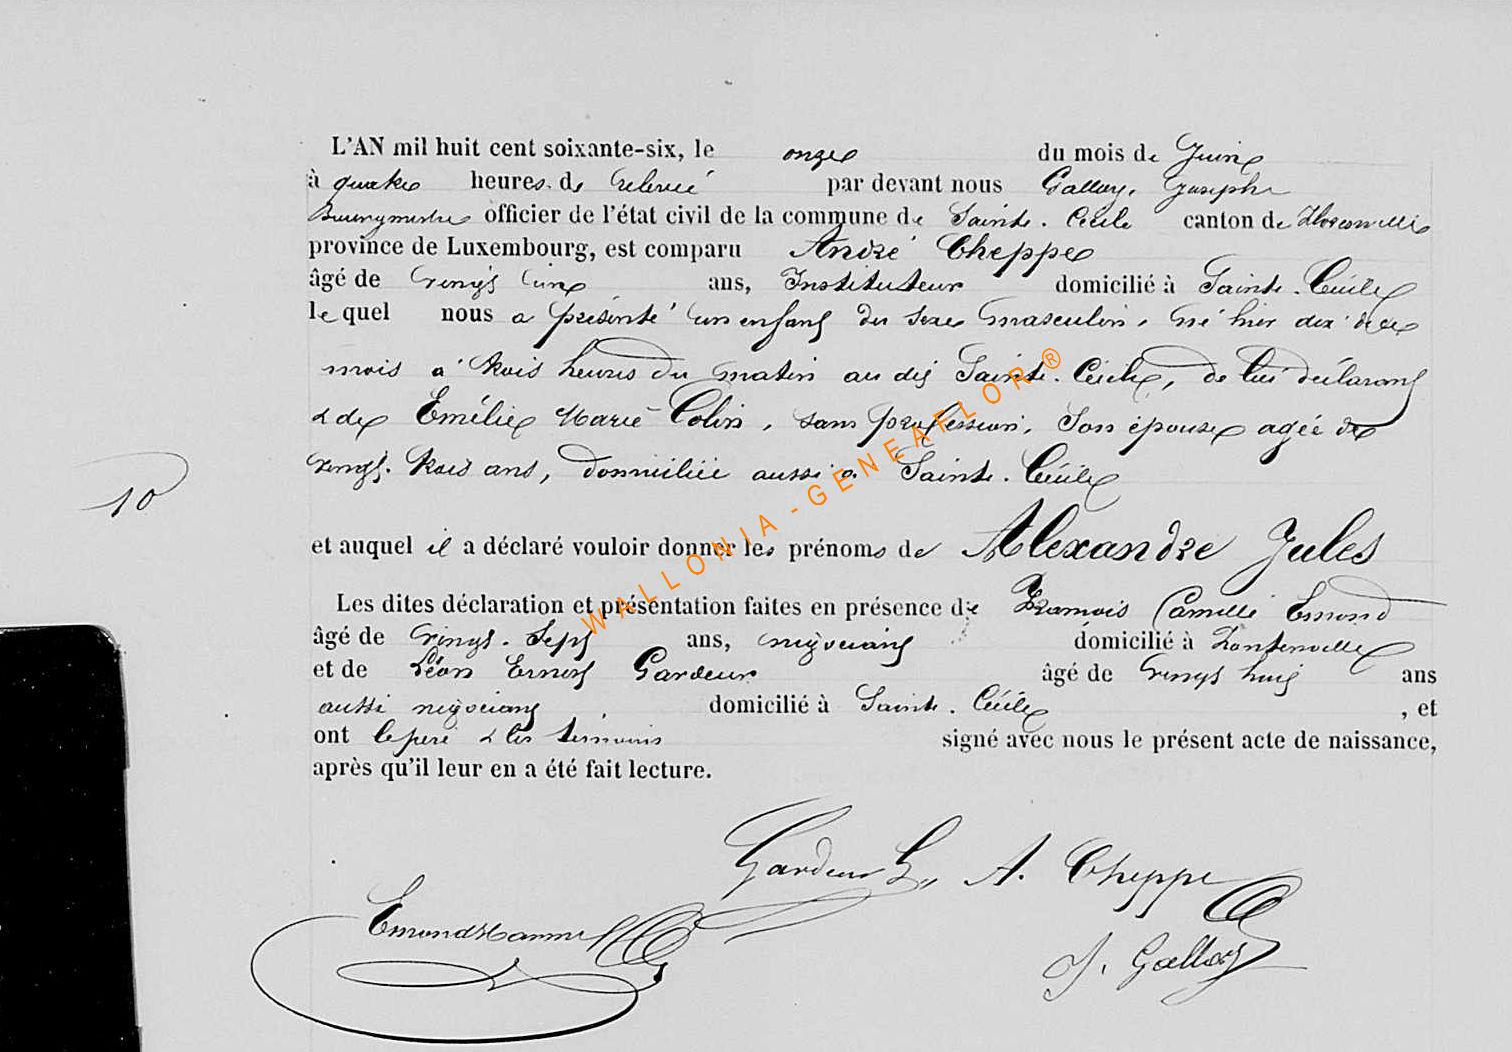 L'AN mil huit cent soixante-six, le onze du mois de Juin
à quatre heures de relevé par devant nous Galloy, Joseph
Bourgmestre officier de l'état civil de la commune de Sainte-Cécile canton de Florenville
province de Luxembourg, est comparu André Cheppe
âgé de vingt cinq ans, Instituteur domicilié à Sainte-Cécile
lequel nous a présenté un enfant du sexe masculin, né hier dix de ce
mois à trois heures du matin au dit Sainte-Cécile, de lui déclarant
& de Emélie Marie Colin, sans profession, son épouse agée de
vingt-trois ans, domiciliée aussi à Sainte-Cécile
10
et auquel il a déclaré vouloir donner les prénoms de Alexandre Jules
Les dites déclaration et présentation faites en présence de Camille Emond
âgé de vingt-sept ans, négociant domicilié à Fontenoille
et de Léon Ernest Gardeur âgé de vingt huit ans
aussi négociant domicilié à Sainte-Cécile, et
ont le père & les témoins signé avec nous le présent acte de naissance,
après qu'il leur en a été fait lecture.
Gardeur L. A. Cheppe
J. Galloy
WALLONIA - GENEAFLOR®